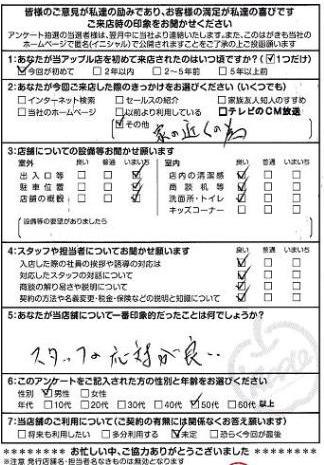 皆様のご意見が私達の励みであり、お客様の満足が私達の喜びです
ご来店時の印象をお聞かせください
アンケート抽選の当選者様は、翌月中に当社より連絡いたします。また、このはがきも当社の
ホームページで匿名(イニシャル)で公開されますことをご了承の上ご投函願います
1:あなたが当アップル店を初めて来店されたのはいつ頃ですか?(☑1つだけ)
☑今回が初めて □2年以内 □2〜5年前 □5年以上前
2:あなたが今回ご来店した際のきっかけをお選びください(いくつでも)
□インターネット検索 □セールスの紹介 □家族友人知人のすすめ
□当社のホームページ □以前より利用している □テレビのCM放送
☑その他
家の近くの為
3:店舗についての設備等お聞かせ願います
室外 良い 普通 いまいち 室内 良い 普通 いまいち
出入口等 店内の清潔感
駐車位置 商談机等
店舗の概観 洗面所・トイレ
キッズコーナー
(設備等の要望がありましたら
4:スタッフや担当者についてお聞かせ願います 良い 普通 いまいち
入店した際の社員の挨拶や誘導の対応は
対応したスタッフの対話について
商談の解り易さや説明について
契約の方法や名義変更・税金・保険などの説明と知識について
5:あなたが当店舗について一番印象的だったことは何でしょうか?
スタッフの応対が良い
6:このアンケートをご記入された方の性別と年齢をお選びください
性別 ☑男性 □女性
年代 □10代 □20代 □30代 □40代 ☑50代 □60代 以上
7:当店舗のご利用について(ご契約の有無には関係なくお答え願います)
□将来も利用したい □多分利用する ☑未定 □恐らく今回が最後
******** お忙しい中、ご協力ありがとうございました ********
※注意 発行店舗名・担当者名なきものは無効となります